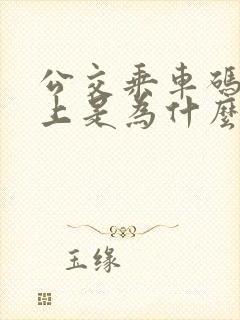 公交乘車碼
上是為什麼
玉缘